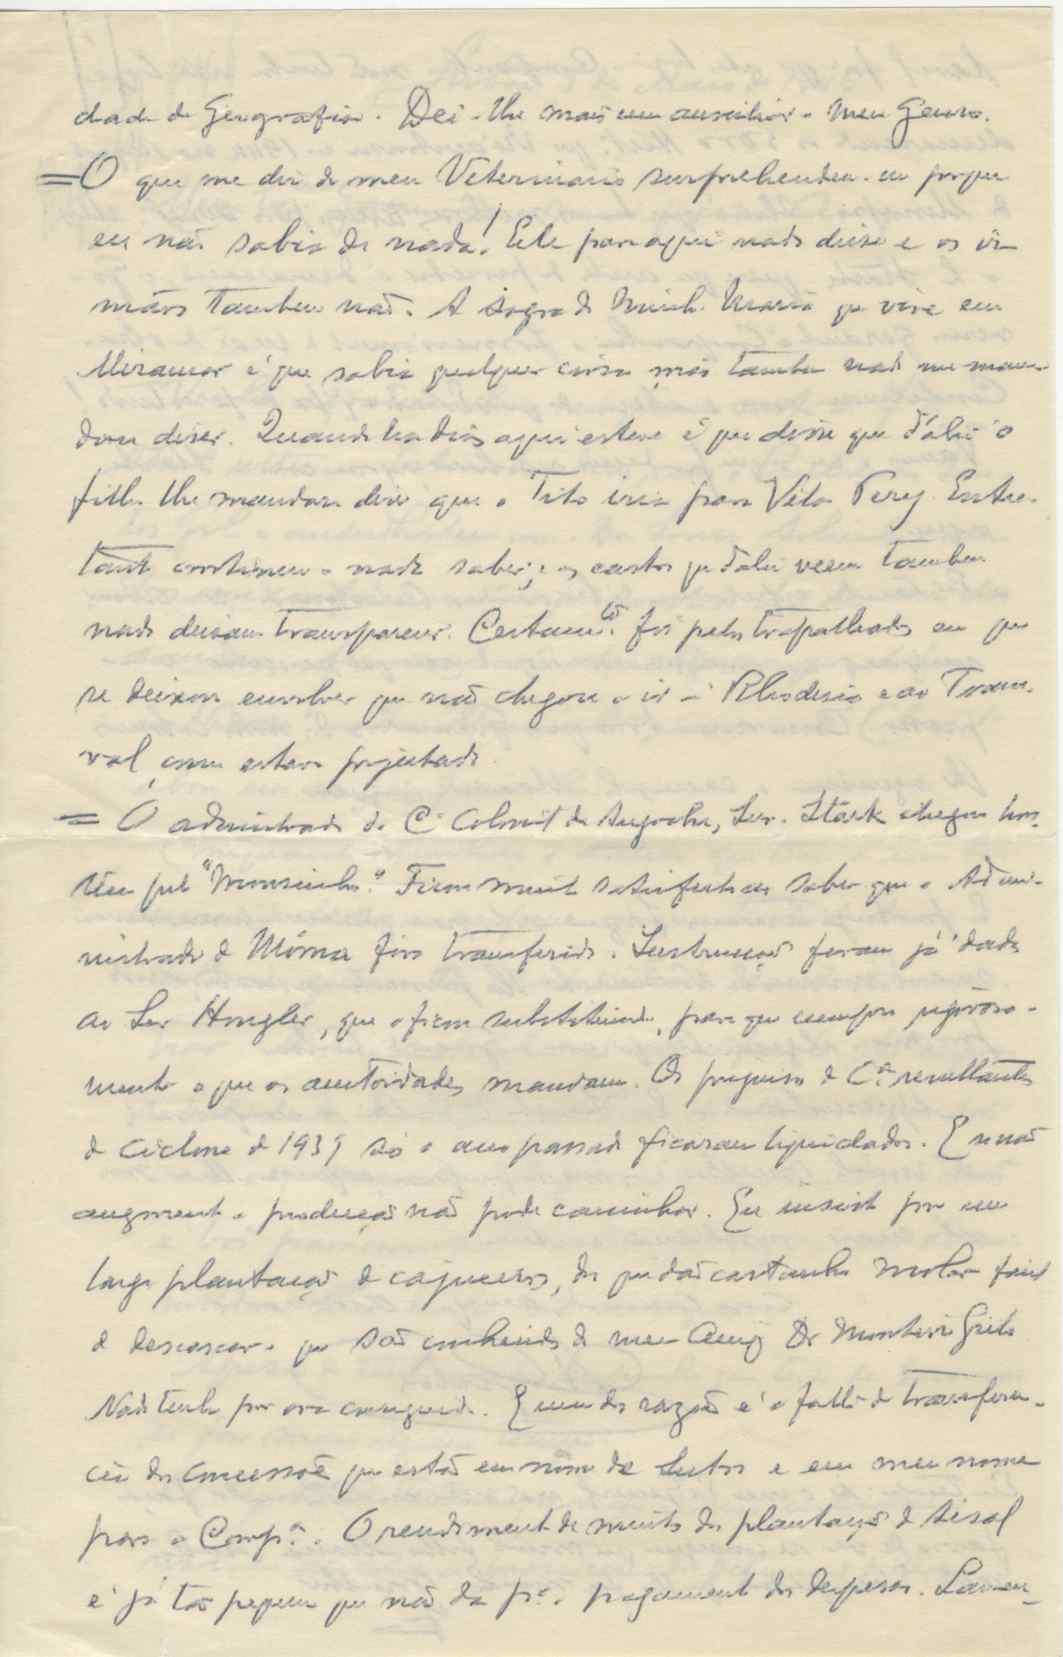 dade de Geografia. Dei-lhe mais um auxiliar o meu Genro.
= O que me diz do meu Veterinario surprehendeu-me porque
eu não sabia de nada! Ele para aqui nada disse e os ir-
mãos tambem não. A sogra de minha Maria que vive em
Miramar é que sabia qualquer coisa mas tambem nada me man-
dou dizer. Quando ha dias aqui esteve é que disse que d'ali o
filho lhe mandara dizer que o Tito iria para Vila Pery. Entre-
tanto continuo a nada saber; e as cartas que d'ali veem tambem
nada deixam transparecer. Certamte. foi pelas trapalhadas em que
se deixou envolver que não chegou a ir á Rhodesia e ao Trans-
val, como estava projectado.
= O administrador da Ca. Colonial de Angoche, Snr. Stark chegou hon-
tem pelo "Mousinho". Ficou muito satisfeito ao saber que o Admi-
nistrador de Môma fôra transferido. Instrucções foram já dadas
ao Snr Hongler, que o ficou substituindo, para que cumpra rigorosa-
mente o que as autoridades mandam. Os prejuisos da Ca. resultantes
do ciclone de 1939 só o ano passado ficaram liquidados. E se não
augmenta a producção não pode caminhar. Eu insisto por uma
larga plantação de cajueiros, dos que dão castanha molar facil
de descascar e que são conhecidos do meu Amigo Dr Monteiro Grilo
Nada tenho por ora conseguido. E uma das razões é a falta de transferen-
cia das concessões que estão em nome de outros e em meu nome
para a Compa. O rendimento de muitas das plantações de sisal
é já tão pequeno que não da pa. o pagamento das despesas. Lamen-